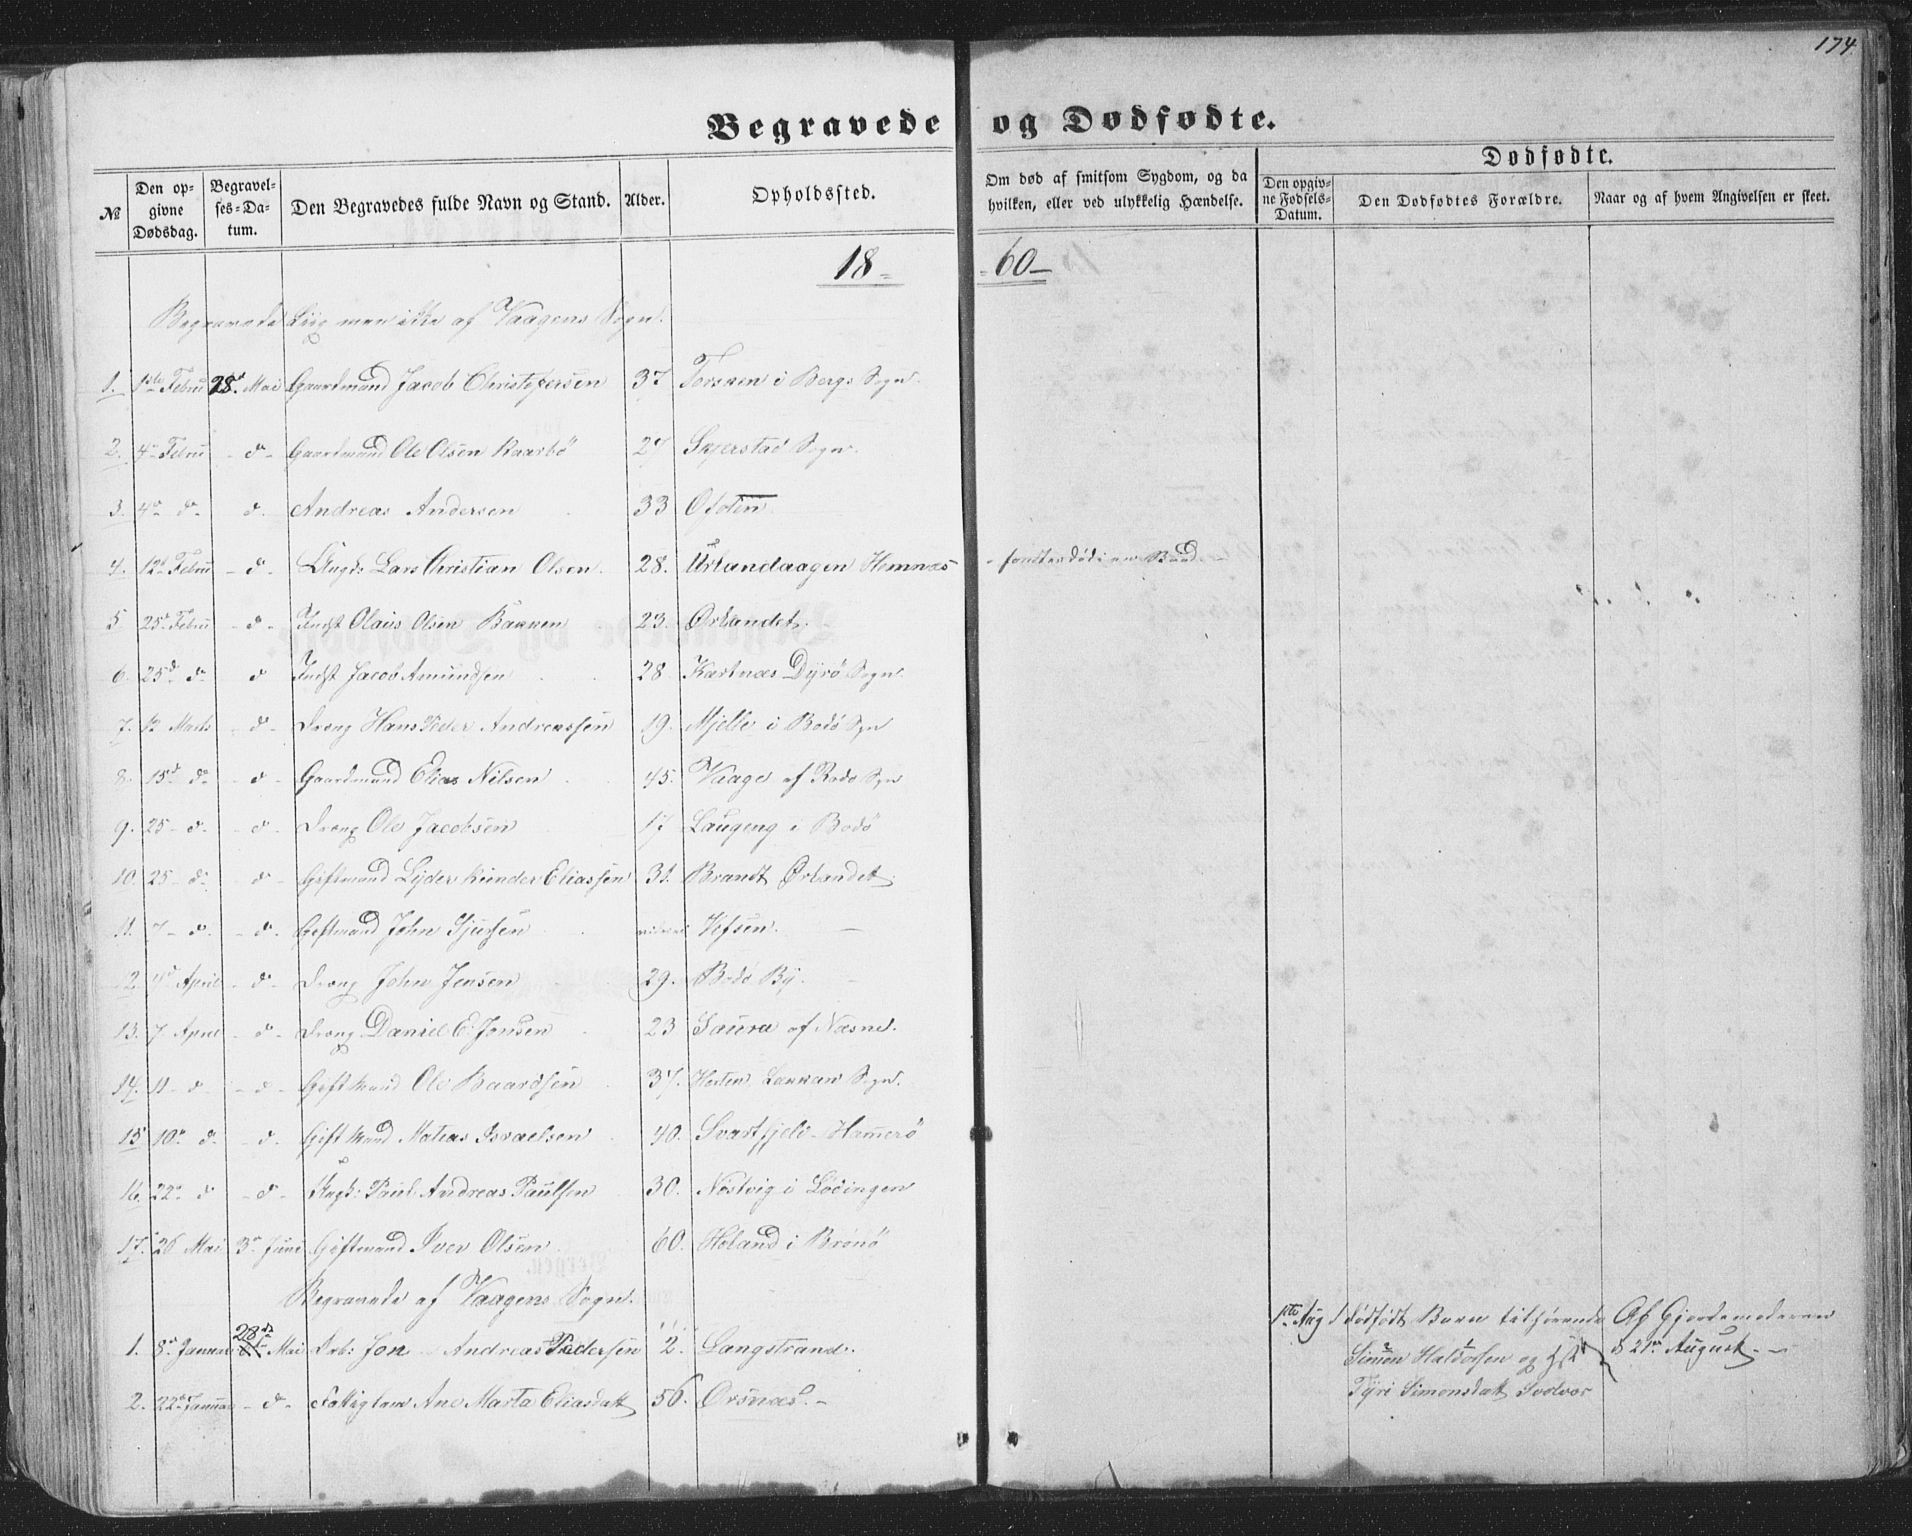 174.
Begravede og Dødfødte.
№ Den opgivne Dødsdag. Begravelses-Datum. Den Begravedes fulde Navn og Stand. Alder. Opholdssted. Om død af smitsom Sygdom, og da hvilken, eller ved ulykkelig Hændelse. Dødfødte. Den opgivne Fødsels-Datum. Den Dødfødtes Forældre. Naar og af hvem Angivelsen er skeet.
18 60
Begravede Liig men ikke af Vaagens Sogn.
1. 1ste Febru 28d Mai Gaardmand Jacob Christofersen 37 Torsken i Bergs Sogn.
2. 4 Febru d Gaardmand Ole Olsen Kaarbö 27 Skjerstad Sogn.
3. 4d d d Andreas Andersen 33 Ofoten
4. 12d Febru d Ungk: Lars Christian Olsen 28. Urlandaagen Hemnæs - døde i en Baad -
5 25d Febru d Indst Olaus Olsen Bakken 23. Ørlandet.
6. 25d d d Indst Jacob Amundsen 28. Kastnæs Dyrö Sogn
7. 12 Marts d Dreng Hans Peder Andreassen 19. Mjelle i Bodö Sgn
8. 15d d d Gaardmand Elias Nilsen 45. Vaage af Rødø Sgn
9. 25 d d Dreng Ole Jacobsen 17 Laugeng i Bodö
10. 25 d d Giftmand Lyder Kunder Eliassen 31. Brandt Ørlandet.
11. 7 d d Giftmand John Sjursen Vefsen.
12. 4d April d Dreng John Jensen 29. Bodö By.
13. 7 April d Dreng Daniel E. Jonsen 23 Saura af Næsne.
14. 11 d d Gift Mand Ole Baardsen 37. Sogn.
15 10d d d Gift Mand Mateas Israelsen 40. Svartfjeld Hamerö
16. 22d d d Ungk: Paul Andreas Paulsen 30. Nöstvig i Lödingen
17. 26 Mai 3d Juni Giftmand Iver Olsen 60. Høland i Brönö
Begravede af Vaagens Sogn.
1. 8d Januar 28d Mai Drb: Jon Andreas Pedersen 2. Langstrand. 1ste Aug 1 dødfødt Barn tilhørende Af Gjordemoderen
Simon Haldorsen og Hst d 21d August.
2. 22d Januar d Fattiglem Ane Marta Eliasdatt 56. Örsnæs. Tyri Simonsdatt Svolvær